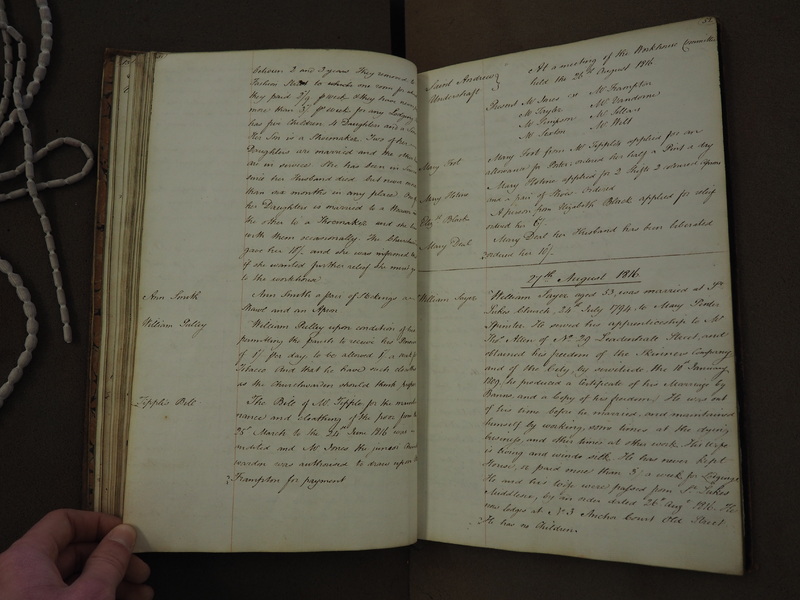 between 2 and 3 years They removed to
they paid 2/9 week & they have never
more than 3/ Pr week for any Lodging
has five Children 4 Daughters and a Son
Her Son is a Shoemaker. Two of her
Daughters are married and the other
are in service She has been in
since her Husband died but never more
than six months in any place. One of
her Daughters is married to a
the other to a Shoemaker and she
with them occasionally. The
gave her 10/. and she was informed
if she wanted further relief she must go
to the workhouse
Ann Smith
Ann Smith a pair of Stockings a
Shawl and an Apron
William Pulley
William Pulley upon condition of his
permitting the parish to receive his
of 1/ Per day, to be allowed 1/ a week for
Tobacco And that he have such cloaths
as the Churchwarden should think proper
Tipple's Bill
The Bill of Mr. Tipple for the mainte
nance and cloathing of the poor from the
25th March to the 24th June 1816 was
audited and Mr Jones the junior Church
warden was authorized to draw upon Mr
Frampton for payment
52
Saint Andrew
Undershaft
At a meeting of the Workhouse Committee
held the 26th August 1816
Present Mr Jones Mr Frampton
Mr Taylor Mr Vandome
Mr Simpson Mr Sellers
Mr Sexton Mr Wilt
Mary Fost
Mary Fost from Mr Tipple's applied for an
allowance for Porter, ordered her half a Pint a day
Mary Holme
Mary Holme applied for 2 Shifts 2 colored Aprons
and a pair of Shoes. Ordered
Elizth Black
A person from Elizabeth Black applied for relief
ordered her 5/.
Mary Deal
Mary Deal her Husband has been liberated
ordered her 10/.
27th August 1816.
William Sayer
William Sayer aged 53, was married at St
Lukes Church, 24th July 1794 to Mary Pinder
Spinster. He served his apprenticeship to Mr
Thos. Allen of No 29 Leadenhall Street, and
obtained his freedom of the Skinners Company
and of the City, by servitude the 10th January
1809, he produced a Certificate of his Marriage by
Banns and a copy of his freedom. He was out
of his time before he married, and maintained
himself by working, some times at the dying
business, and other times at other work. His Wife
is living and winds silk. He has never kept
House, or paid more than 3/ a week for Lodgings
He and his Wife were passed from St Lukes
Middlesex, by an order dated 26th Augt 1816. He
was lodged at No 3 Anchor Court Old Street
He has no Children.